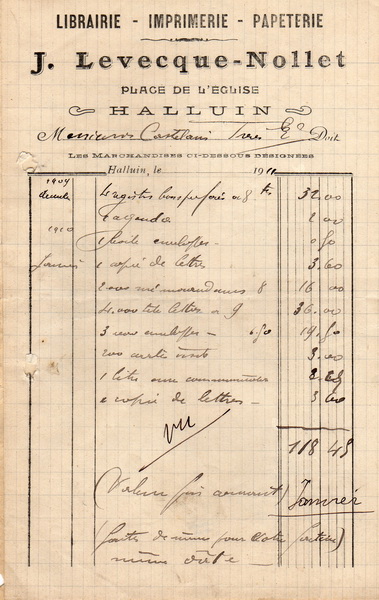 LIBRAIRIE - IMPRIMERIE - PAPETERIE
J. Levecque-Nollet
PLACE DE L'ÉGLISE
HALLUIN
Messieurs Castelain frères Doit
LES MARCHANDISES CI-DESSOUS DÉSIGNÉES
Halluin, le 1911
4 registres à 8 frs 32.00
2 agenda 2.00
1910
1 boîte enveloppes .80
Janvier 2 copie de lettres 3.60
2000 mémorandums 8 16.00
4.000 tête lettres à 9 36.00
3 000 enveloppes - 6.50 19.50
200 carte visite 3.00
1 livre
2 copie de lettres - 3.60
118 45
(Valeur fin courant) Janvier
(faites de même pour votre facture)
même date -